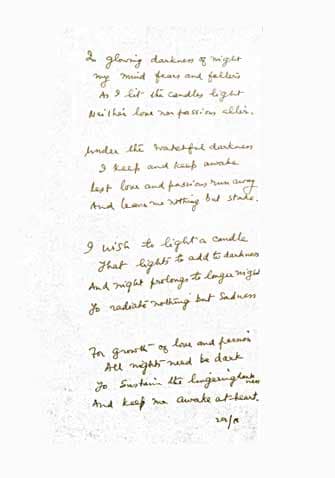 In glowing darkness of night
my mind fears and falters
As I lit the candles light
Neither love nor passions

Under the wakeful darkness
I keep and keep awake
Lest love and passions run away
And leave me nothing but stake.

I wish to light a candle
That lights to add to darkness
And night prolongs to longer night
To radiate nothing but Sadness

For growth of love and passion
All nights need be dark
To Sustain the lingering
And keep me awake at heart.